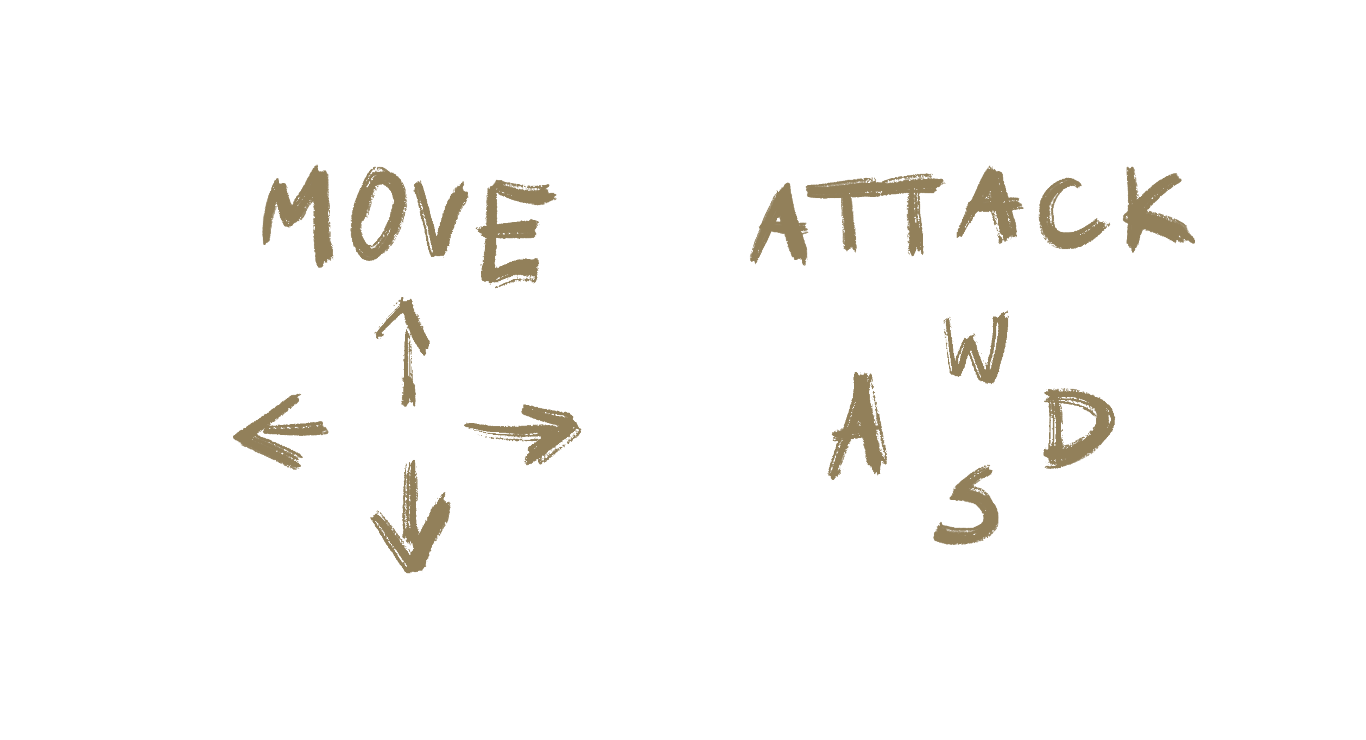 MOVE
ATTACK
W
A D
S